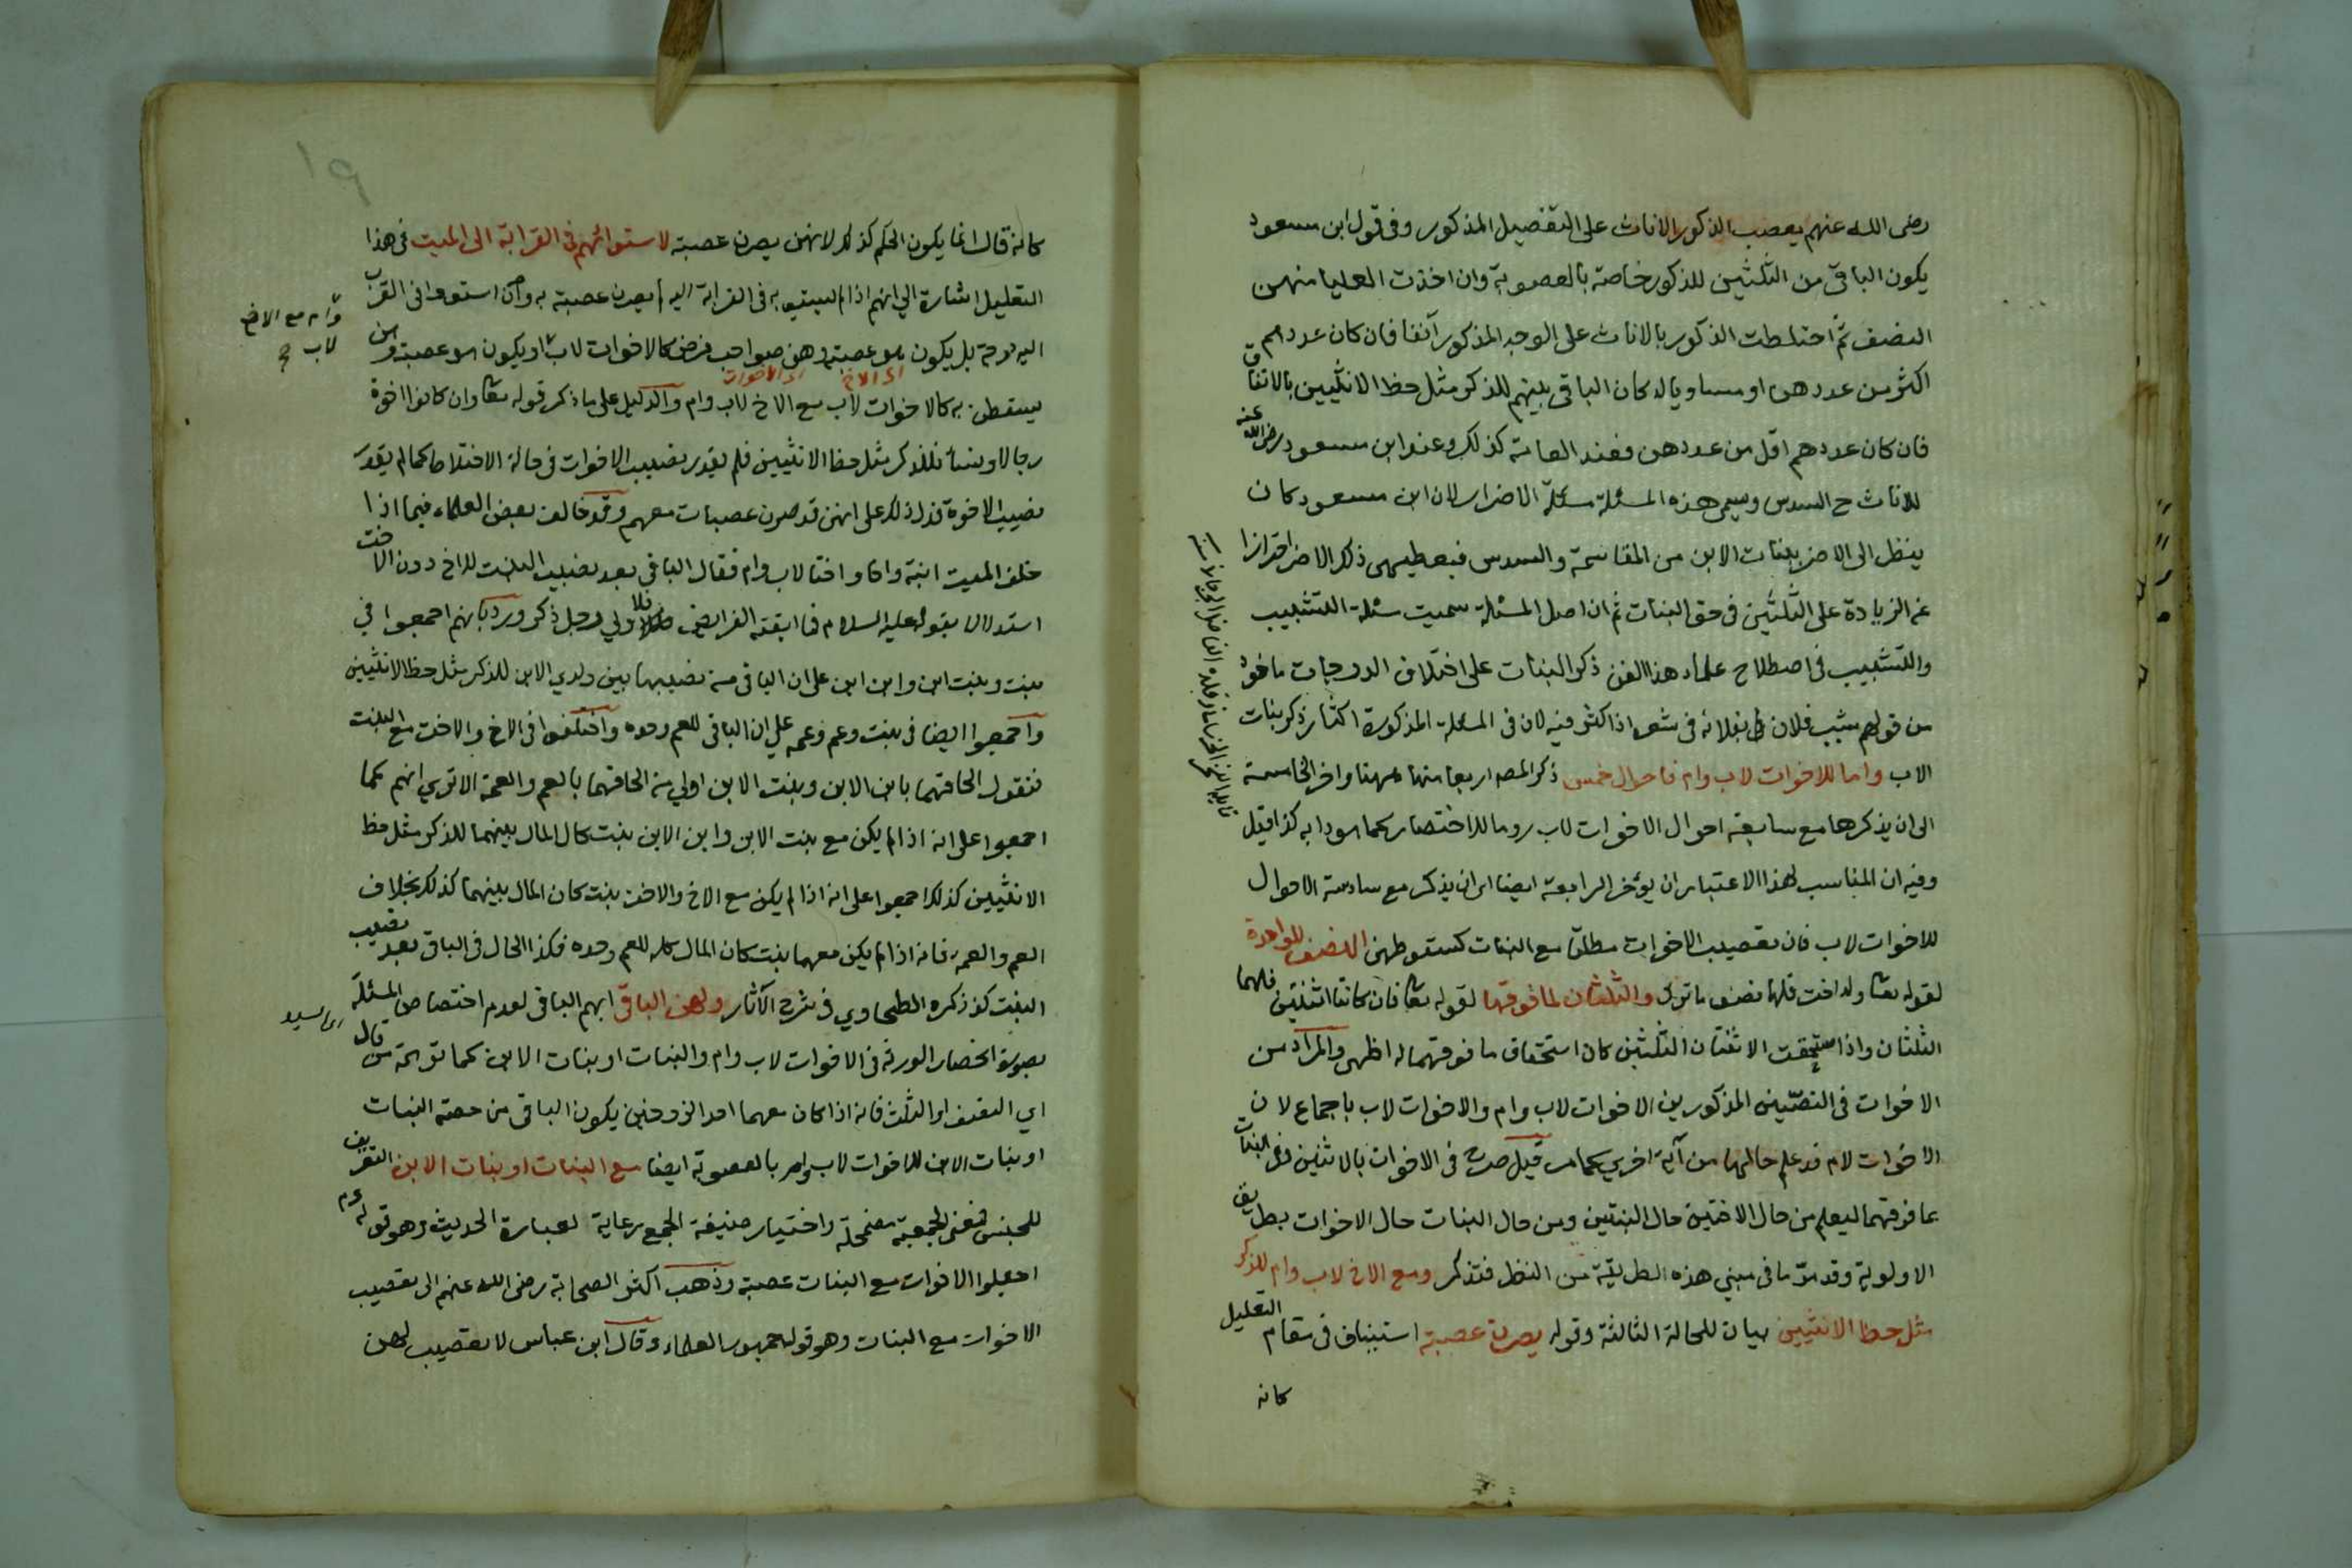 رضى الله عنهم يعصب الذكور الاناث على التفصيل المذكور وفى قول ابن مسعود
يكون الباقى من الثلثين للذكور خاصة بالعصوبة وان اخذت العليا منهن
النصف ثم اختلطت الذكور بالاناث على الوجه المذكور آنفا فان كان عددهم
اكثر من عددهن او مساويا له كان الباقى بينهم للذكر مثل حظ الانثيين بالاتفاق
فان كان عددهم اقل من عددهن فعند العامة كذلك وعند ابن مسعود رضى الله عنه
للاناث ح السدس ويسمى هذه المسئلة مسئلة الاضرار لان ابن مسعود كان
ينظر الى الاضر ببنات الابن من المقاسمة والسدس فيعطيهن ذلك الاضر احترازا
عن الزيادة على الثلثين فى حق البنات ثم ان اصل المسئلة سميت مسئلة التشبيب
والتشبيب فى اصطلاح علماء هذا الفن ذكر البنات على اختلاف الدرجات ماخوذ
من قولهم شبب فلان بفلانة فى شعره اذا اكثر فيه لان فى المسئلة المذكورة اكثار ذكر بنات
الاب واما للاخوات لاب وام فاحوال خمس ذكر المصه اربعا منها ههنا واخر الخامسة
الى ان يذكرها مع سابعة احوال الاخوات لاب روما للاختصار كما هو دابه كذا قيل
وفيه ان المناسب لهذا الاعتبار ان يؤخر الرابعة ايضا الى ان يذكر مع سادسة الاحوال
للاخوات لاب فان تعصيب الاخوات مطلقا مع البنات كسقوطهن النصف للواحدة
لقوله تعا وله اخت فلها نصف ما ترك والثلثان لما فوقها لقوله تعا فان كانتا اثنتين فلهما
الثلثان واذا استحقت الاثنتان الثلثين كان استحقاق ما فوقهما له اظهر والمراد من
الاخوات فى النصين المذكورين الاخوات لاب وام والاخوات لاب باجماع لان
الاخوات لام قد علم حالها من آية اخرى كما مر قيل صرح فى الاخوات بالاثنين وفى البنات
بما فوقهما ليعلم من حال الاختين حال البنتين ومن حال البنات حال الاخوات بطريق
الاولوية وقد مر ما فى مبنى هذه الطريقة من النظر فتذكر ومع الاخ لاب وام للذكر
مثل حظ الانثيين بيان للحالة الثالثة وقوله يصرن عصبة استيناف فى مقام التعليل
كانه
١٩
كانه قال انما يكون الحكم كذلك لانهن يصرن عصبة لاستوائهم فى القرابة الى الميت فى هذا
التعليل اشارة الى انهم اذا لم يستووا به فى القرابة اليه لم يصرن عصبة به وان استووا فى القرب
اليه درجة بل يكون هو عصبة وهن صواحب فرض كالاخوات لاب او يكون هو عصبة وهن
اى الاخ اى الاخوات
يسقطن به كالاخوات لاب مع الاخ لاب وام والدليل على ما ذكر قوله تعا وان كانوا اخوة
وام مع الاخ
لاب
رجالا ونساء فللذكر مثل حظ الانثيين فلم يقدر نصيب الاخوات فى حالة الاختلاط كما لم يقدر
نصيب الاخوة فدل ذلك على انهن قد صرن عصبات معهم وقد خالف بعض العلماء فيما اذا
خلف الميت ابنة واخا واختا لاب وام فقال الباقى بعد نصيب البنت للاخ دون الاخت
استدلالا بقوله عليه السلام فما ابقته الفرائض فلاولى رجل ذكر ورد بانهم اجمعوا فى
بنت وبنت ابن وابن ابن على ان الباقى من نصيبها بين ولدى الابن للذكر مثل حظ الانثيين
واجمعوا ايضا فى بنت وعم وعمه على ان الباقى للعم وحده واختلفوا فى الاخ والاخت مع البنت
فنقول الحاقهما بابن الابن وبنت الابن اولى من الحاقهما بالعم والعمة الا ترى انهم كما
اجمعوا على انه اذا لم يكن مع بنت الابن وابن الابن بنت كان المال بينهما للذكر مثل حظ
الانثيين كذلك اجمعوا على انه اذا لم يكن مع الاخ والاخت بنت كان المال بينهما كذلك بخلاف
العم والعمه فانه اذا لم يكن معهما بنت كان المال كله للعم وحده فكذا الحال فى الباقى بعد نصيب
البنت كذا ذكره الطحاوى فى شرح الآثار ولهن الباقى ابهم الباقى لعدم اختصاص المسئلة
بصورة انحصار الورثة فى الاخوات لاب وام والبنات او بنات الابن كما توهمه من قال
اى السيد
اى النصف او الثلث فانه اذا كان معهما احد الزوجين يكون الباقى من حصته البنات
او بنات الابن للاخوات لاب وام بالعصوبة ايضا مع البنات او بنات الابن التعريف
للجنس فمعنى الجمعية مضمحلة واختيار صيغة الجمع رعاية لعبارة الحديث وهو قوله عم
اجعلوا الاخوات مع البنات عصبة وذهب اكثر الصحابة رضى الله عنهم الى تعصيب
الاخوات مع البنات وهو قول جمهور العلماء وقال ابن عباس لا تعصيب لهن